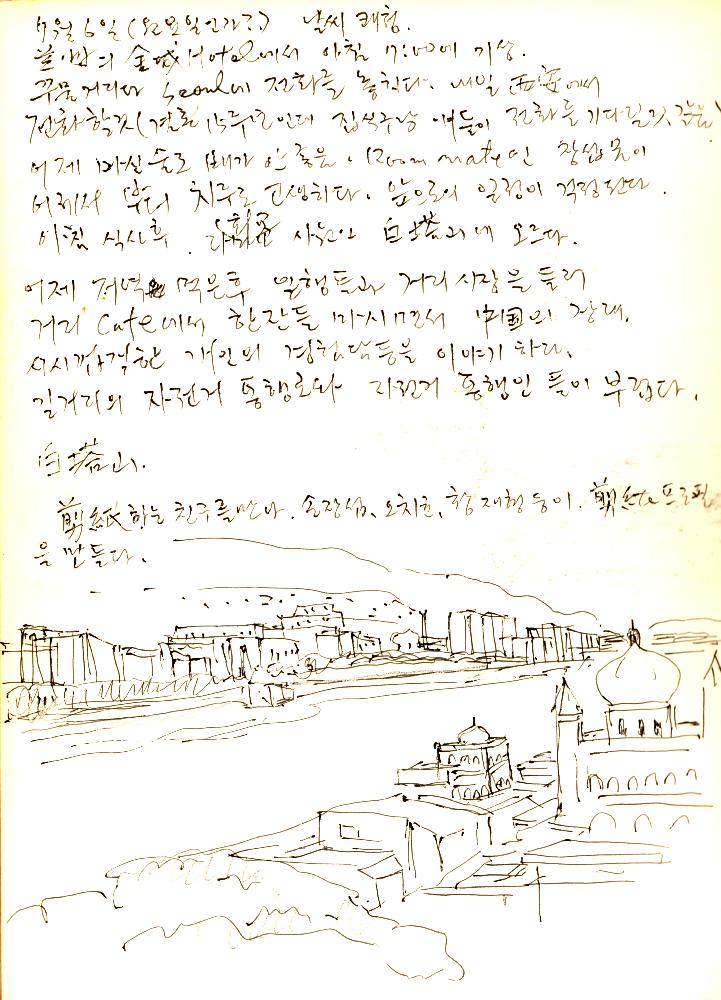 7월 6일 (月요일인가?) 날씨 쾌청.
兰州의 金城 Hotel에서 아침 7:00에 기상.
꾸물거리다 Seoul에 전화를 놓치다. 내일 西安에서
전화할것 (결혼 15주년인데 집식구들이 전화를 기다릴것 같음)
어제 마신 술로 배가 안좋음. Room mate인 장섭 못이
어제서 부터 치루로 고생하다. 앞으로의 일정이 걱정된다.
아침 식사후 사원인 白塔山에 오르다.
어제 저녁 먹은후 일행들과 거리 시장을 들러
거리 Cafe에서 한잔들 마시면서 中国의 장래,
개인의 경험담등을 이야기 하다.
길거리의 자전거 통행로와 자전거 통행인 들이 부럽다.
白塔山.
剪紙하는 친구를 만나. 손장섭, 오치균, 황재형 등이. 剪紙로 프로필
을 만들다.